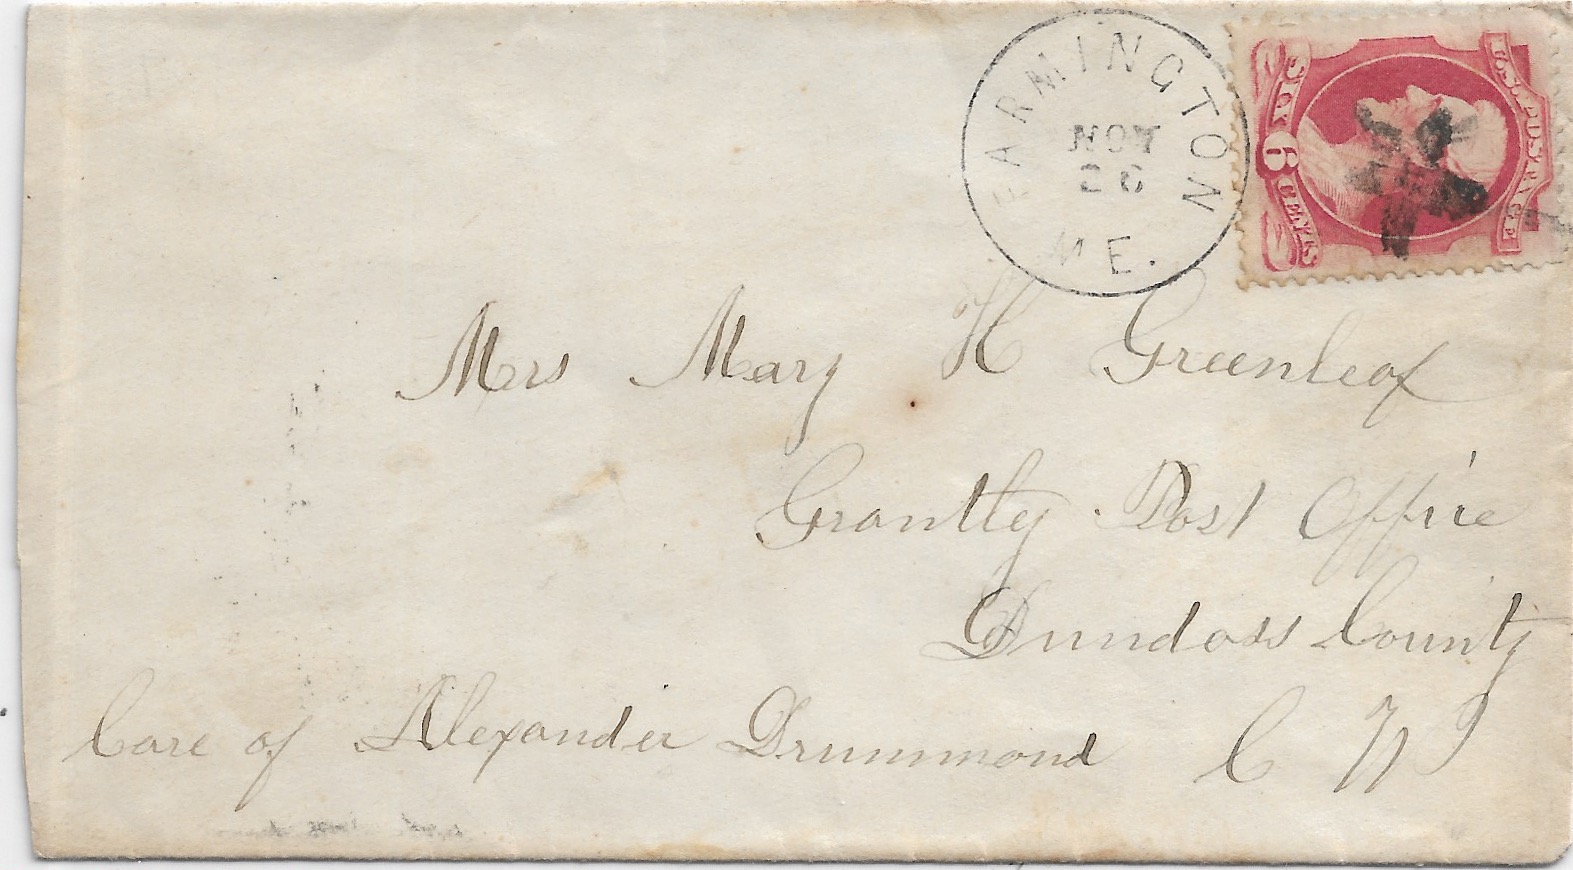 FARMINGTON
NOV
26
ME.
U.S. POSTAGE
SIX 6 CENTS
Mrs Mary H Greenleaf
Grantly Post Office
Dundass County
Care of Alexander Drummond C W